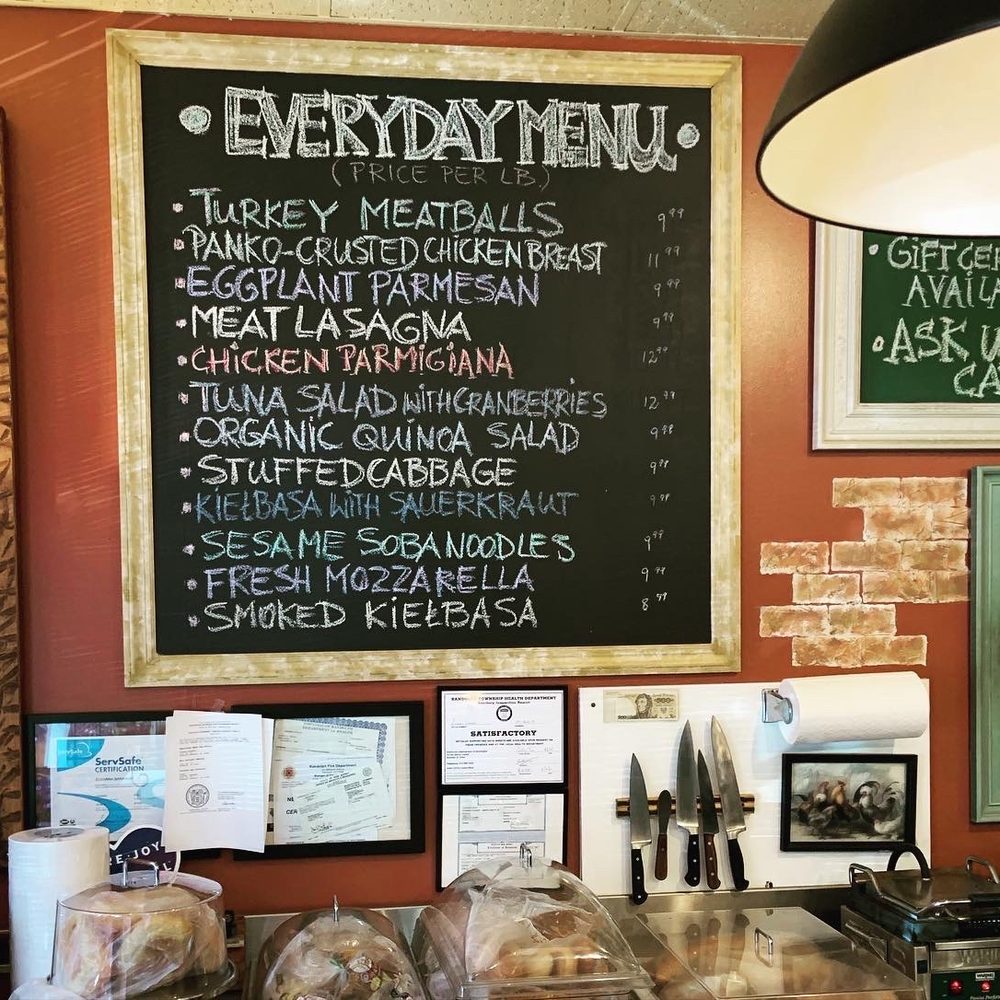 • EVERYDAY MENU •
(PRICE PER LB.)
• TURKEY MEATBALLS 9.99
• PANKO-CRUSTED CHICKEN BREAST 11.99
• EGGPLANT PARMESAN 9.99
• MEAT LASAGNA 9.99
• CHICKEN PARMIGIANA 12.99
• TUNA SALAD WITH CRANBERRIES 12.99
• ORGANIC QUINOA SALAD 9.99
• STUFFED CABBAGE 9.99
• KIEŁBASA WITH SAUERKRAUT 9.99
• SESAME SOBA NOODLES 9.99
• FRESH MOZZARELLA 9.99
• SMOKED KIEŁBASA 8.99
• GIFT CER
AVAILA
• ASK U
CA
ServSafe
ServSafe
CERTIFICATION
TOWNSHIP HEALTH DEPARTMENT
SATISFACTORY